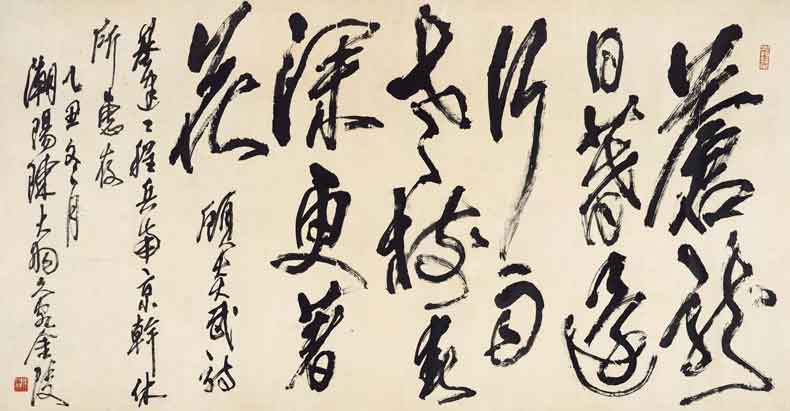 蒼龍
日暮還
行雨
老樹春
深更著
花 顧炎武詩
基建工程兵南京幹休
所惠存
乙丑冬月
潮陽陳大羽久客金陵